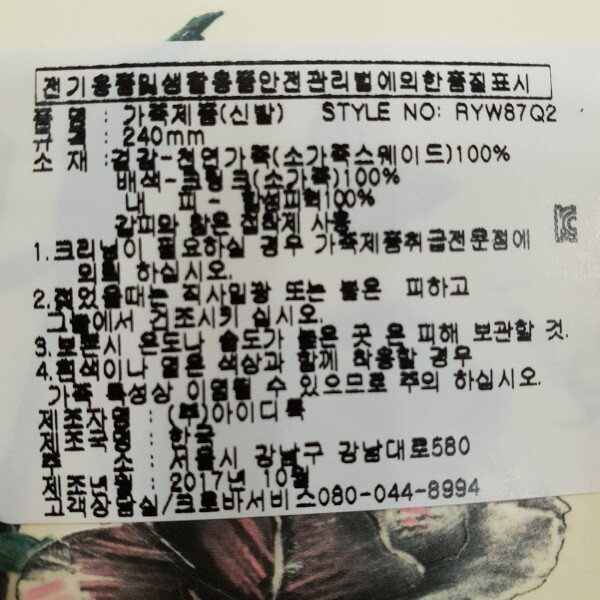 전기용품및생활용품안전관리법에의한품질표시
품 명 : 가죽제품(신발) STYLE NO: RYW87Q2
: 240mm
소 재 : 겉감-천연가죽(소가죽스웨이드)100%
배색-크링크(소가죽)100%
내 피 - 합성피혁100%
갑피와 창은 접착제 사용
1. 크리닝이 필요하실 경우 가죽제품취급전문점에
의뢰 하십시오.
2. 젖었을때는 직사일광 또는 불은 피하고
그늘에서 건조시키 십시오.
3. 보관시 온도나 습도가 높은 곳 은 피해 보관할 것.
4. 흰색이나 밝은 색상과 함께 착용할 경우
가죽 특성상 이염될 수 있으므로 주의 하십시오.
제조자명 : (주)아이디룩
제조국명 : 한국
주 소 : 서울시 강남구 강남대로580
제조년월 : 2017년 10월
고객상담실/크로바서비스080-044-8994